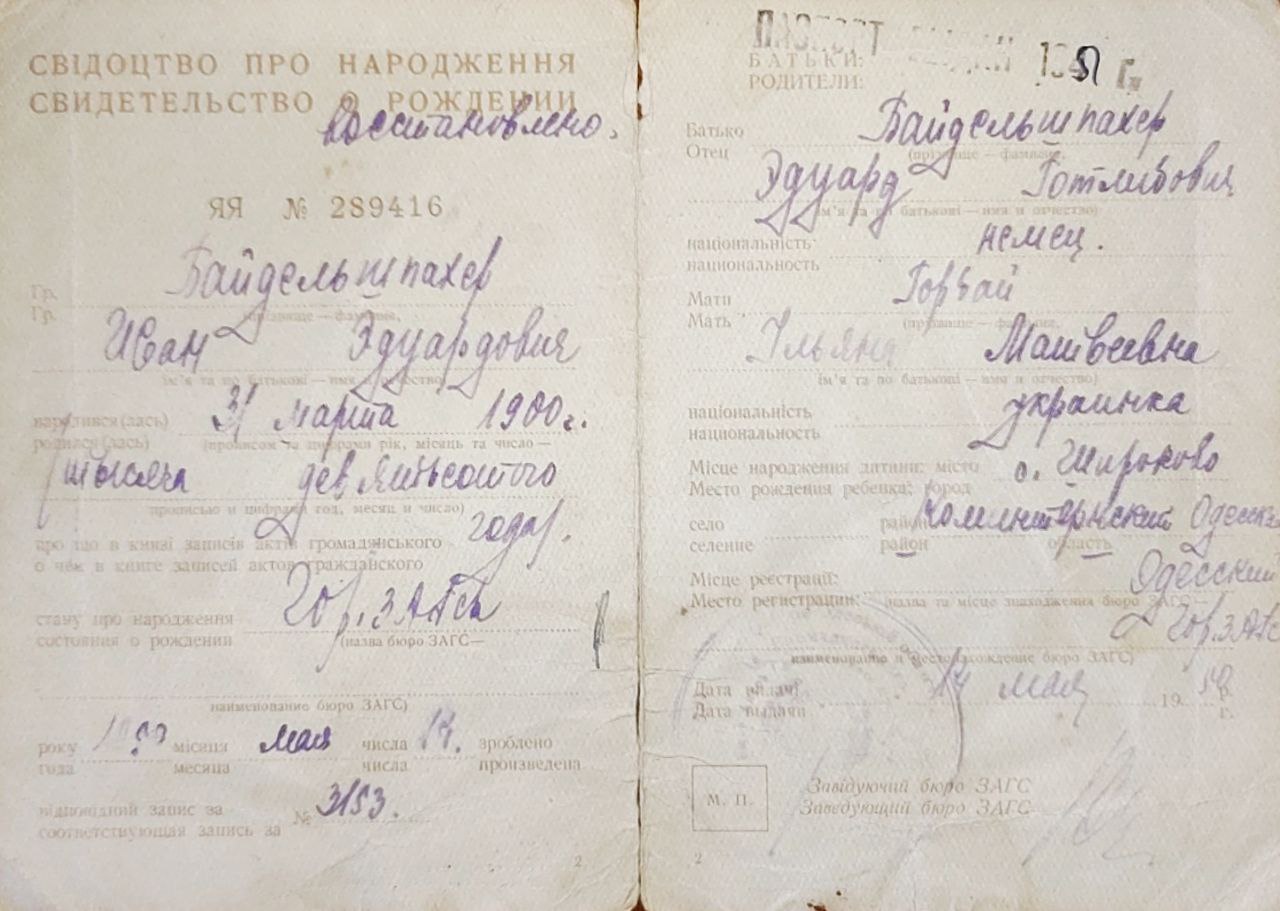 СВІДОЦТВО ПРО НАРОДЖЕННЯ
СВИДЕТЕЛЬСТВО О РОЖДЕНИИ
восстановлено.
ЯЯ № 289416
Байдельшпахер
Гр.
Гр. (прізвище — фамилия,
Иван Эдуардович
ім'я та по батькові — имя и отчество)
народився(лась) 31 марта 1900 г.
родился(лась) (прописом та цифрами рік, місяць та число —
тысяча девятьсотого
прописью и цифрами год, месяц и число)
года.
про що в книзі записів актів громадянського
о чём в книге записей актов гражданского
Гор.ЗАГСа
стану про народження
состояния о рождении (назва бюро ЗАГС—
наименование бюро ЗАГС)
року місяця мая числа 14. зроблено
года месяца числа произведена
відповідний запис за № 3153.
соответствующая запись за
2
ПАСПОРТ г.
БАТЬКИ:
РОДИТЕЛИ:
Батько Байдельшпахер
Отец (прізвище — фамилия,
Эдуард Готлибович
ім'я та по батькові — имя и отчество)
національність немец.
национальность
Мати Горбай
Мать (прізвище — фамилия,
Ульяна Матвеевна
ім'я та по батькові — имя и отчество)
національність украинка
национальность
Місце народження дитини: місто с. Широково
Место рождения ребенка: город
село район Коминтерновский Одесск
селение район область
Місце реєстрації: Одесский
Место регистрации: (назва та місце знаходження бюро ЗАГС—
Гор.ЗАГС
наименование и местонахождение бюро ЗАГС)
Дата видачі 14 мая 19
Дата выдачи г.
М. П.
Завідуючий бюро ЗАГС
Заведующий бюро ЗАГС
2